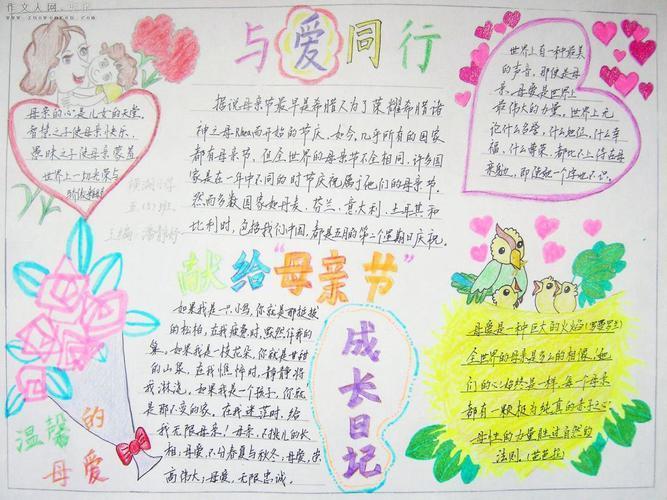 作文人网
与爱同行
母亲的心是儿女的天堂
智慧之子使母亲快乐，
愚昧之子使母亲蒙羞
世界上一切光荣与
五(5)班
主编：潘静妤
据说母亲节最早是希腊人为了荣耀希腊诸
神之母Rhea而开始的节庆。如今，几乎所有的国家
都有母亲节，但全世界的母亲节不全相同。许多国
家是在一年中不同的时节庆祝属于他们的母亲节。
然而多数国家如丹麦、芬兰、意大利、土耳其和
比利时，包括我们中国，都是五月的第二个星期日庆祝。
世界上有一种最美
的声音，那便是母
亲。母爱是世界上
最伟大的力量。世界上无
论什么名誉，什么地位，什么幸
福，什么尊荣，都比不上待在母
亲躯，即使她一个字也不识。
献给"母亲节"
如果我是一只小鸟，你就是那挺拔
的松柏，在我疲惫时，默然作我的
巢。如果我是一枝花朵，你就是甘甜
的山泉，在我憔悴时，静静将
我淋浇。如果我是一个孩子，你就
是那不变的家，在我迷茫时，给
我无限母亲！母亲，不授儿的长
相；母爱，不分春夏与秋冬；母爱，崇
高伟大；母爱，无限忠诚。
成长日记
母爱是一种巨大的火焰(罗曼罗兰)
全世界的母亲是多么的相像，她
们的心始终是一样，每个母亲
都有一颗极为纯真的赤子之心
母性的力量胜过自然的
法则。(芭芭拉)
温馨的
母爱